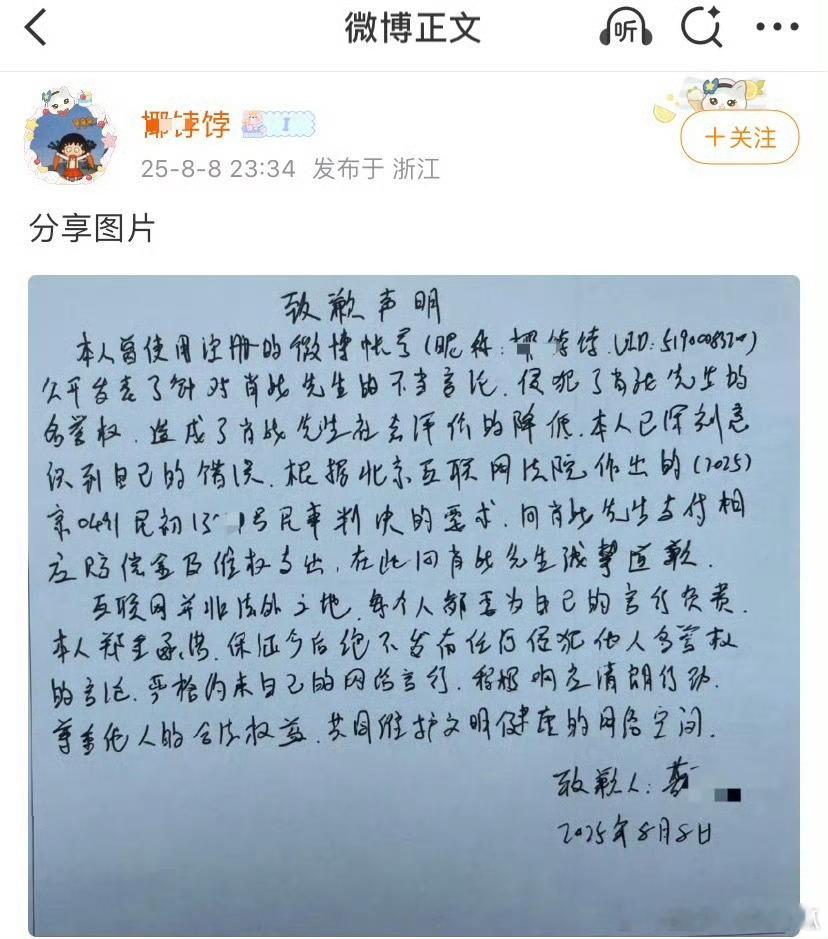 微博正文
听
饽饽
I
25-8-8 23:34 发布于 浙江
+关注
分享图片
致歉声明
本人曾使用注册的微博帐号(昵称: 饽饽.UID:51900083200)
公开发表了针对肖战先生的不当言论.侵犯了肖战先生的
名誉权.造成了肖战先生社会评价的降低.本人已深刻意
识到自己的错误.根据北京互联网法院作出的(2025)
京0491民初15 1号民事判决的要求.向肖战先生支付相
应赔偿金及维权支出,在此向肖战先生诚挚道歉.
互联网并非法外之地.每个人都要为自己的言行负责.
本人郑重承诺.保证今后绝不发布任何侵犯他人名誉权
的言论.严格约束自己的网络言行.积极响应清朗行动.
尊重他人的合法权益.共同维护文明健康的网络空间.
致歉人:
2025年8月8日